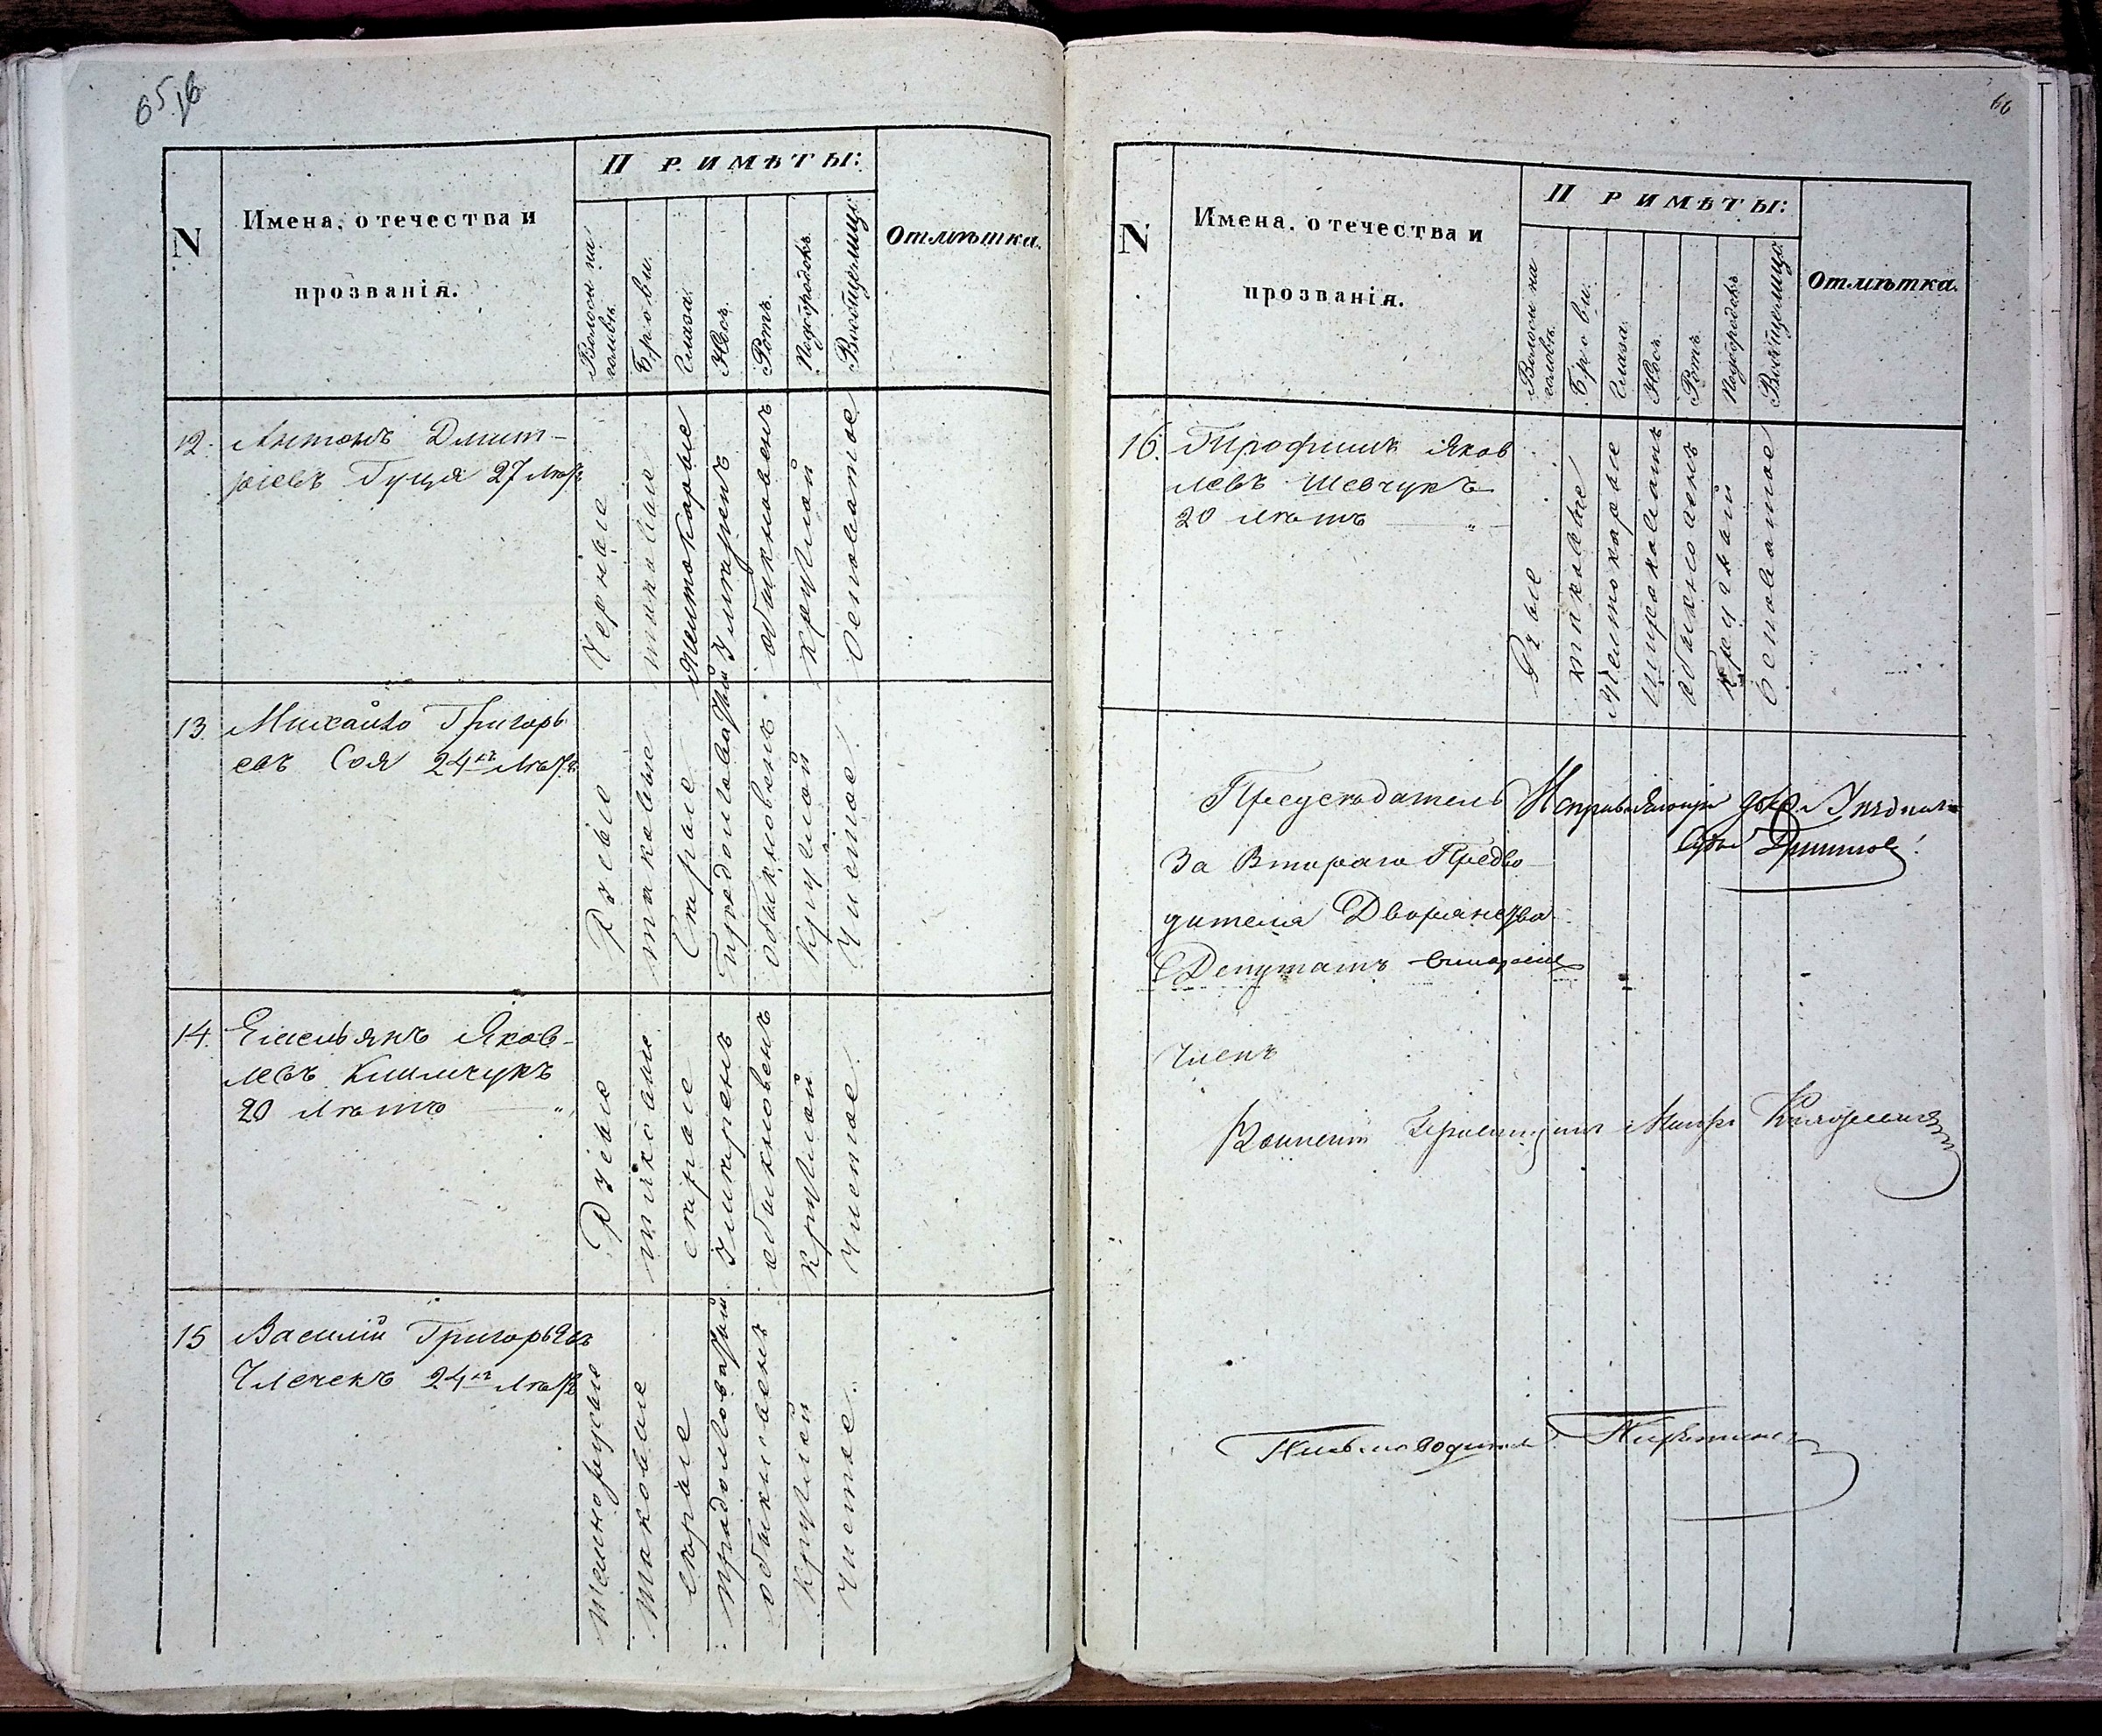 65.
N
Имена, отечества и
прозванія.
П Р И МѢ Т Ы:
Волосы на
головѣ.
Брови.
Глаза.
Носъ.
Ротъ.
Подбородокъ.
Вообще лице
Отмѣтка.
12. Антонъ Дмит-
ріевъ Гуща 27 лѣтъ
Черные
таковые
желтокарые
умѣренъ
обыкновенъ
круглой
осповатое
13. Михайло Григорь
евъ Соя 24 лѣтъ
Русые
таковые
Сѣрые
продолговатый
обыкновенъ
круглой
Чистое
14. Емельянъ Яков-
левъ Климчукъ
20 лѣтъ — "
Русые
таковые
сѣрые
умѣренъ
обыкновенъ
круглой
чистое
15 Василій Григорьевъ
24 лѣтъ
темнорусые
таковые
сѣрые
продолговатый
обыкновенъ
круглой
чистое
66
N
Имена, отечества и
прозванія.
П Р И МѢ Т Ы:
Волосы на
головѣ.
Брови.
Глаза.
Носъ.
Ротъ.
Подбородокъ.
Вообще лице
Отмѣтка.
16. Трофимъ Яков
левъ Шевчукъ
20 лѣтъ — "
Русые
таковые
желтокарые
широковатъ
обыкновенъ
круглой
осповатое
Предсѣдатель Исправляющій долж. Уѣзднаго
Судьи
За Втораго Предво-
дителя Дворянства
Депутатъ
Членъ
Военный
Письмоводитель